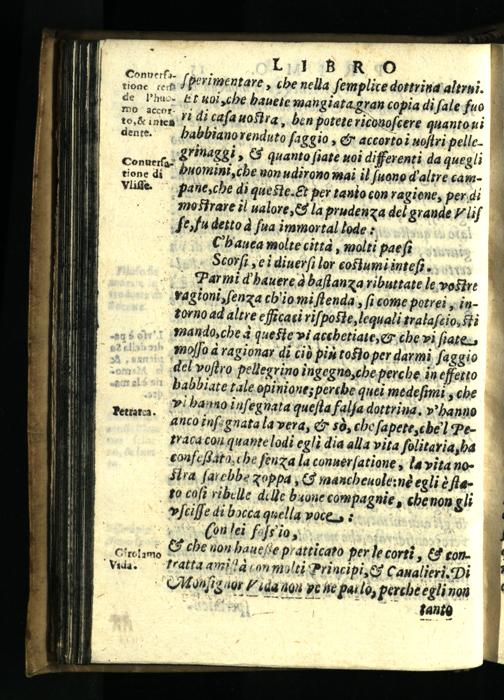 LIBRO
Conuersa-
tione rende
de l'huo-
mo accor-
to, & inten
dente.
sperimentare, che nella semplice dottrina altrui.
Et uoi, che hauete mangiata gran copia di sale fuo
ri di casa uostra, ben potete riconoscere quanto ui
habbiano renduto saggio, & accorto i uostri pelle-
grinaggi, & quanto siate uoi differenti da quegli
Conuersa-
tione di
Vlisse.
huomini, che non udirono mai il suono d'altre cam-
pane, che di queste. Et per tanto con ragione, per di
mostrare il ualore, & la prudenza del grande Vlis
se, fu detto à sua immortal lode:
C'hauea molte città, molti paesi
Scorsi, e i diuersi lor costumi intesi.
Parmi d'hauere à bastanza ributtate le vostre
ragioni, senza ch'io mi stenda, si come potrei, in-
torno ad altre efficaci risposte, lequali tralascio, sti
mando, che à queste vi acchetiate, & che vi siate
mosso à ragionar di ciò più tosto per darmi saggio
del vostro pellegrino ingegno, che perche in effetto
habbiate tale opinione; perche quei medesimi, che
vi hanno insegnata questa falsa dottrina, v'hanno
Petrarca.
anco insegnata la vera, & sò, che sapete, che'l Pe-
traca con quante lodi egli dia alla vita solitaria, ha
confessato, che senza la conuersatione, la vita no-
stra sarebbe zoppa, & mancheuole: nè egli è sta-
to così ribelle delle buone compagnie, che non gli
vscisse di bocca quella voce:
Con lei foss'io,
Girolamo
Vida.
& che non hauesse pratticato per le corti, & con-
tratta amistà con molti Principi, & Caualieri. Di
Monsignor Vida non ve ne parlo, perche egli non
tanto